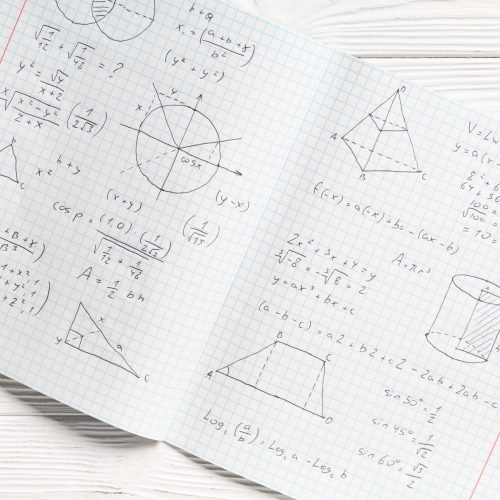 b+Q
x₁ = (a+b+x / b²)
(y² + y²)
√1/12 + √1/48 = ?
y² = √y / x+2
√x²-y² / 2+x (1 / 2√3)
x
y
A
cos x
b+y
x=
B
C
(x+y)
(y-x)
cos p = (1,0) (1 / 2√3)
√1/12 + 1/48
(1 / √15)
A = 1/2 bh
+B+x
B³
y
x
a
C
D
A
B
C
V = Lw
y = a(x
8² +
64 + 36
√100
= 10
f(-x) = a(-x) + b = -(ax-b)
2x² + 3x + 4 = y
³√-8 = -³√8 = 2
y = ax³ + bx + c
A = πr²
(a-b-c) = a2 + b2 + c2 - 2ab + 2ab - c
A
B
C
D
sin 30° = 1/2
sin 45° = 1/√2
sin 60° = √3/2
Log₁ (a/b) = Log₁ a - Log₁ b